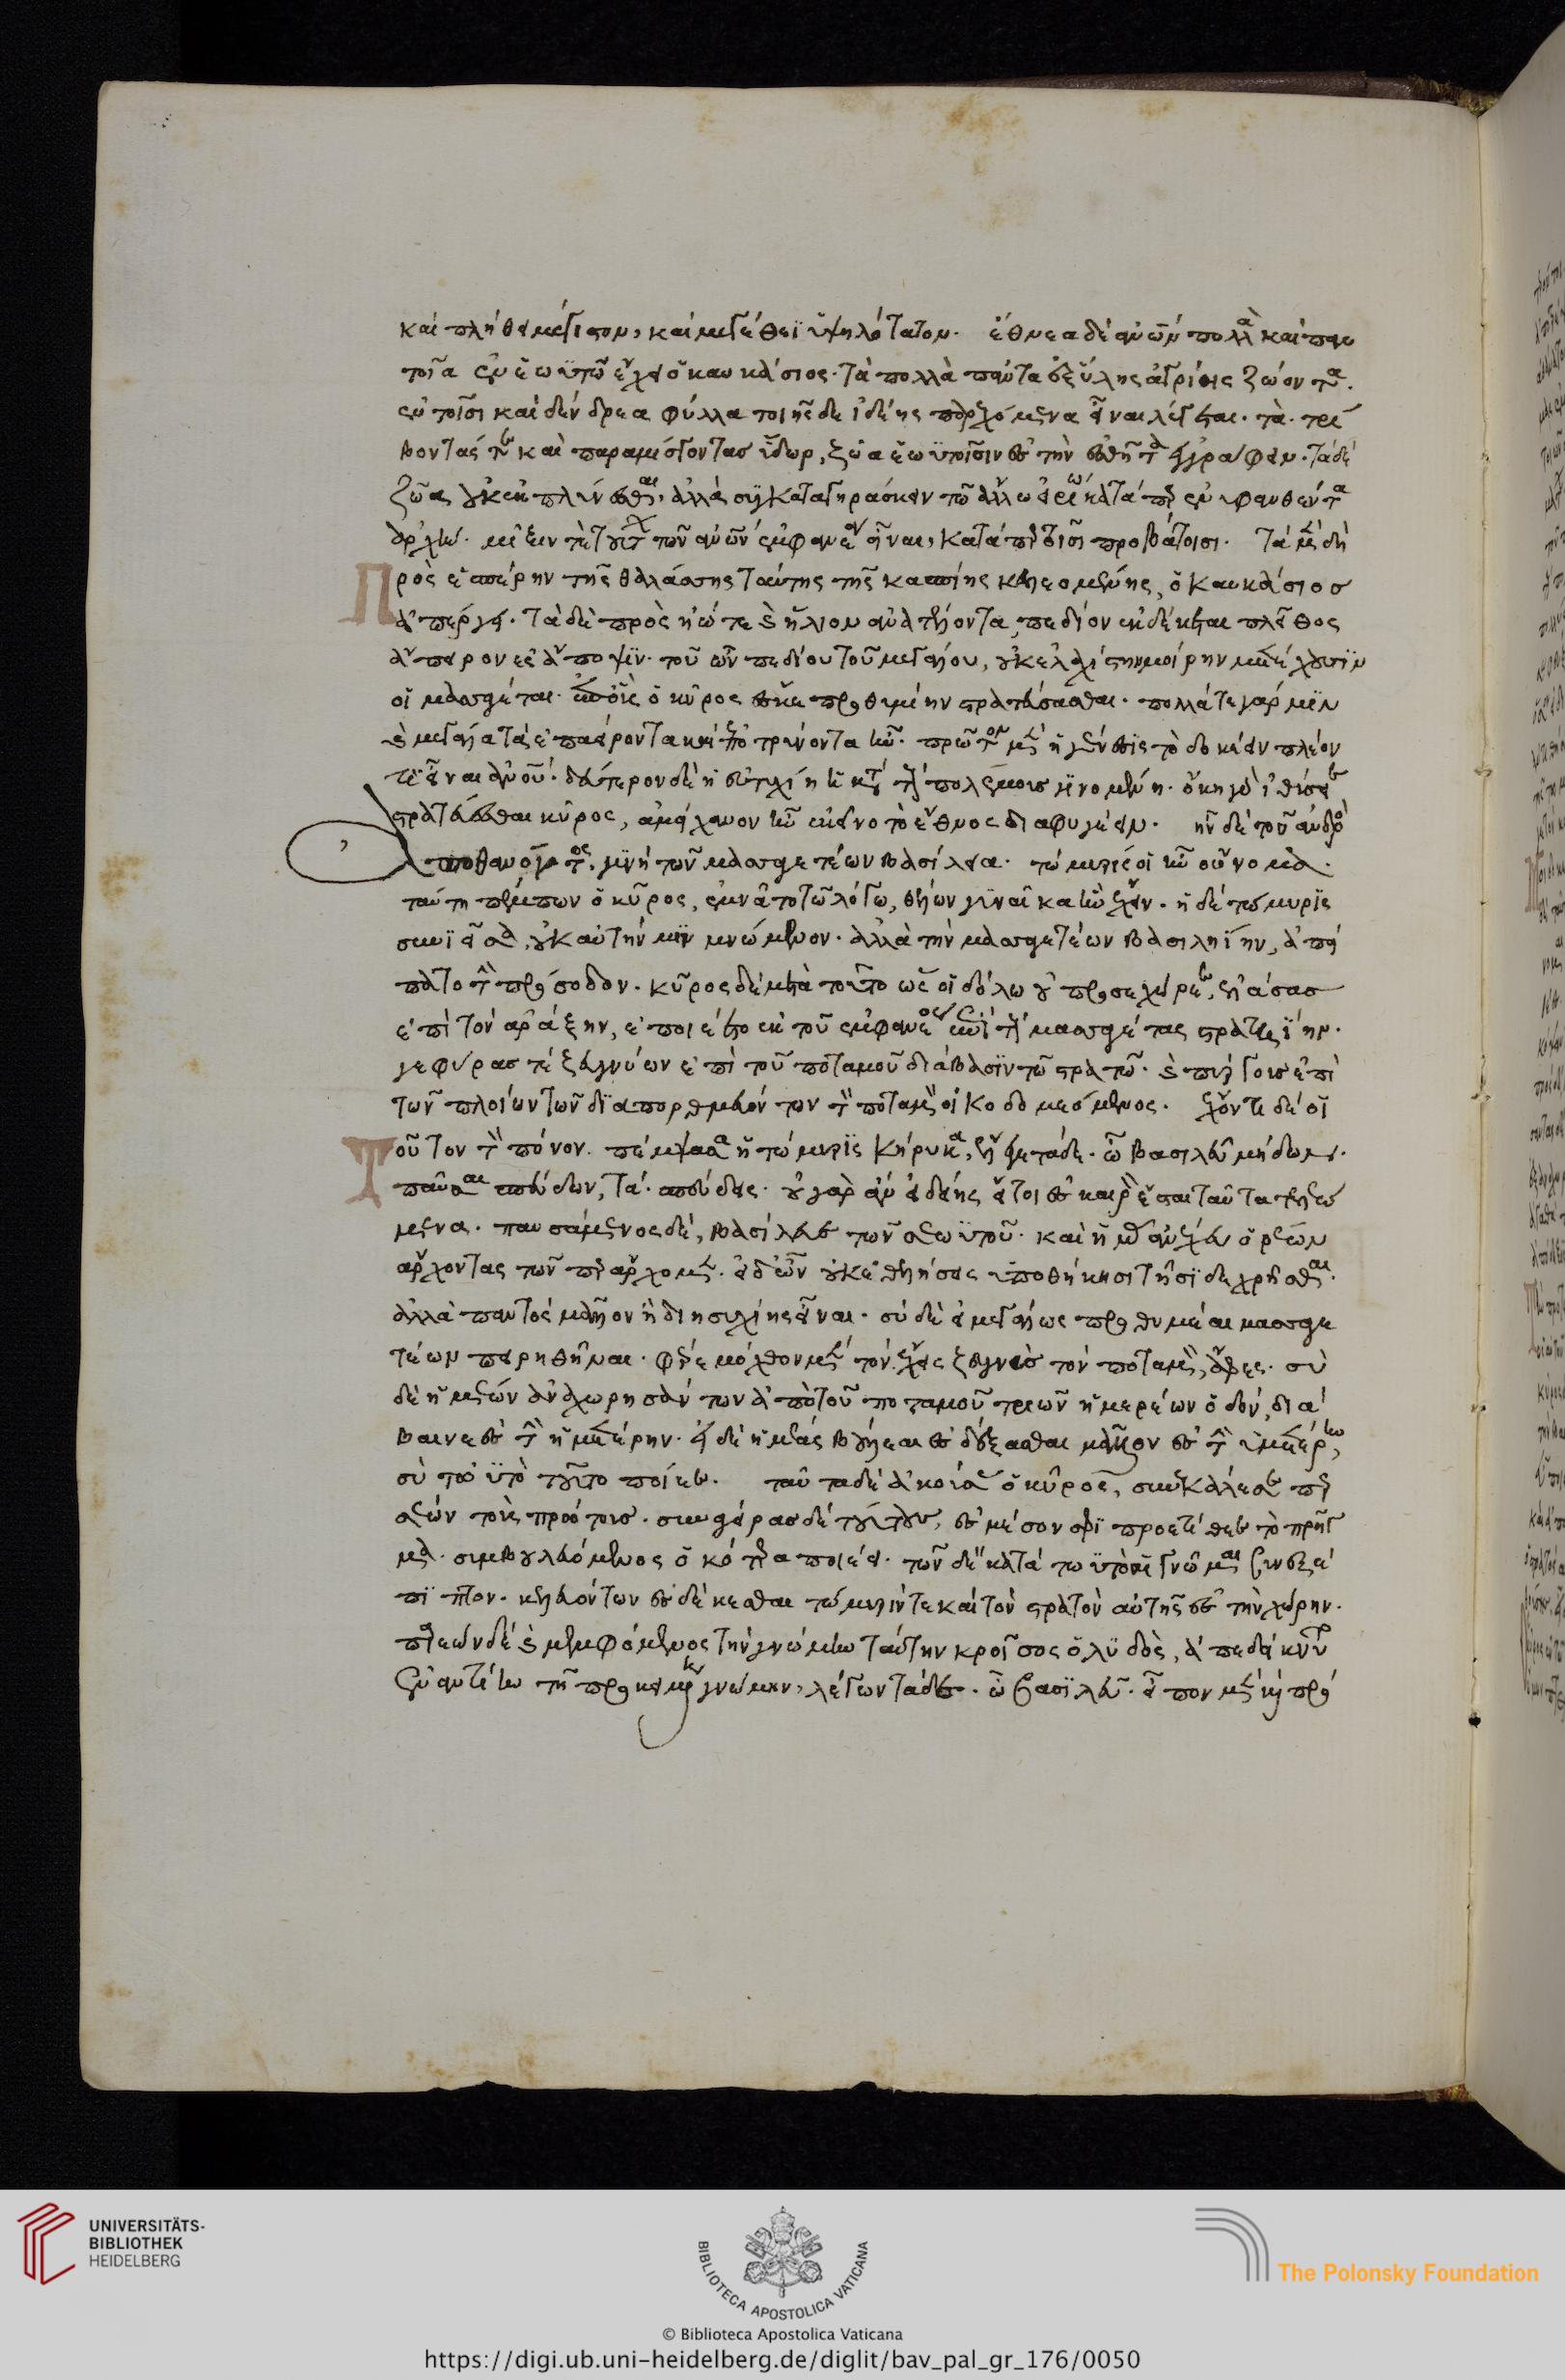 καὶ πλήθει μέγιστον, καὶ μεγέθεϊ ὑψηλότατον. ἔθνεα δὲ ἀνθρώπων πολλὰ καὶ παν
τοῖα ἐν ἑωϋτῶ ἔχει ὁ καυκάσιος. τὰ πολλὰ πάντα ἀπ' ὕλης ἀγρίης ζώοντα.
ἐν τοῖσι καὶ δένδρεα φύλλα τοιῆσδε ἰδέης παρεχόμενα εἶναι λέγεται. τὰ. τρί
βοντάς τε καὶ παραμίσγοντας ὕδωρ, ζῶα ἑωϋτοῖσιν ἐς τὴν ἐσθῆτα ἐγγράφειν. τὰ δὲ
ζῶα οὐκ ἐκπλύνεσθαι, ἀλλὰ συγκαταγηράσκειν τῶ ἄλλω εἰρίω κατάπερ ἐνυφανθέντα
ἀρχήν. μίξιν δὲ τούτων τῶν ἀνθρώπων ἐμφανέα εἶναι, κατάπερ τοῖσι προβάτοισι. τὰ μὲν δὴ
Πρὸς ἑσπέρην τῆς θαλάσσης ταύτης τῆς κασπίης καλεομένης, ὁ καυκάσιος
ἀπέργει. τὰ δὲ πρὸς ἠῶ τε καὶ ἥλιον ἀνατέλλοντα, πεδίον ἐκδέκεται πλῆθος
ἄπειρον ἐς ἄποψιν. τοῦ ὦν πεδίου τοῦ μεγάλου, οὐκ ἐλαχίστην μοίρην μετέχουσιν
οἱ μασσαγέται. ἐπ' οἷς ὁ κῦρος ἔσχε προθυμίην στρατεύσασθαι. πολλά τε γάρ μιν
καὶ μεγάλα τὰ ἐπαείροντα καὶ ἐποτρύνοντα ἦν. πρῶτον μὲν ἡ γένεσις τὸ δοκέειν πλέον
τι εἶναι ἀνθρώπου. δεύτερον δὲ ἡ εὐτυχίη ἡ κατὰ τοὺς πολέμους γινομένη. ὅκη γὰρ ἰθύσειε
στρατεύεσθαι κῦρος, ἀμήχανον ἦν ἐκεῖνο τὸ ἔθνος διαφυγέειν. ἦν δὲ τοῦ ἀνδρὸς
ἀποθανόντος, γυνὴ τῶν μασσαγετέων βασίλεια. τώμυρίς οἱ ἦν οὔνομα.
ταύτη πέμπων ὁ κῦρος, ἐμνᾶτο τῶ λόγω, θέλων γυναῖκα ἣν ἔχειν. ἡ δὲ τώμυρις
συνιεῖσα, οὐκ αὐτήν μιν μνώμενον. ἀλλὰ τὴν μασσαγετέων βασιληΐην, ἀπεί
πατο τὴν πρόσοδον. κῦρος δὲ μετὰ τοῦτο ὥς οἱ δόλω οὐ προσεχώρεε, ἐλάσας
ἐπὶ τὸν ἀράξην, ἐποιέετο ἐκ τοῦ ἐμφανέος ἐπὶ τοὺς μασσαγέτας στρατηΐην.
γεφύρας τε ζευγνύων ἐπὶ τοῦ ποταμοῦ διάβασιν τῶ στρατῶ. καὶ πύργους ἐπὶ
τῶν πλοίων τῶν διαπορθμευόντων τὸν ποταμὸν οἰκοδομεόμενος. ἔχοντι δέ οἱ
Τοῦτον τὸν πόνον. πέμψασα ἡ τώμυρις κήρυκα, ἔλεγε τάδε. ὦ βασιλεῦ μήδων.
παῦσαι σπεύδων, τὰ. σπεύδεις. οὐ γὰρ ἂν εἰδείης εἴ τοι ἐς καιρὸν ἔσται ταῦτα τελεό
μενα. παυσάμενος δὲ, βασίλευε τῶν σεωϋτοῦ. καὶ ἡμέας ἀνέχευ ὁρέων
ἄρχοντας τῶν περ ἄρχομεν. εἰ δ' ὦν οὐκ ἐθελήσεις ὑποθήκησι τῆσίδε χρῆσθαι.
ἀλλὰ παντὸς μᾶλλον ἢ δι' ἡσυχίης εἶναι. σὺ δὲ εἰ μεγάλως προθυμέαι μασσαγε
τέων πειρηθῆναι. φέρε μόχθον μὲν τὸν ἔχεις ζευγνὺς τὸν ποταμὸν, ἄφες. σὺ
δὲ ἡμέων ἀναχωρησάντων ἀπὸ τοῦ ποταμοῦ τριῶν ἡμερέων ὁδόν, διά
βαινε ἐς τὴν ἡμετέρην. εἰ δὲ ἡμέας βούλεαι ἐσδέξασθαι μᾶλλον ἐς τὴν ὑμετέρην,
σὺ τὠυτὸ τοῦτο ποίεε. ταῦτα δὲ ἀκούσας ὁ κῦρος, συνεκάλεσε περ
σέων τοὺς πρώτους. συναγείρας δὲ τούτους, ἐς μέσον σφι προετίθεε τὸ πρῆγ
μα. συμβουλευόμενος ὁκότερα ποιέει. τῶν δὲ κατὰ τὠϋτὸ αἱ γνῶμαι συνεξέ
πιπτον. κελευόντων ἐσδέκεσθαι τώμυρίν τε καὶ τὸν στρατὸν αὐτῆς ἐς τὴν χώρην.
παρεὼν δὲ καὶ μεμφόμενος τὴν γνώμην ταύτην κροῖσος ὁ λυδὸς, ἀπεδείκνυτο
ἐναντίην τῆ προκειμένη γνώμην, λέγων τάδε. ὦ βασιλεῦ. εἶπον μὲν καὶ πρό
UNIVERSITÄTS-
BIBLIOTHEK
HEIDELBERG
BIBLIOTECA APOSTOLICA VATICANA
The Polonsky Foundation
© Biblioteca Apostolica Vaticana
https://digi.ub.uni-heidelberg.de/diglit/bav_pal_gr_176/0050